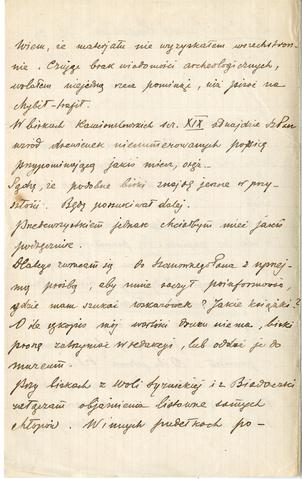 Wiem, że materjału nie wyzyskałem wszechstron-
nie. Czując brak wiadomości archeologicznych,
wolałem niejedną rzecz pominąć, niż pisać na
chybił-trafił.
W biskach str. XIX znajdzie Sz. Pan
wśród nienumerowanych
przypominającą jakiś miecz,
Sądzę, że podobne biski znajdę jeszcze w przy-
szłości. Będę poszukiwał dalej.
Przedewszystkiem jednak chciałbym mieć jakiś
podręcznik.
Dlatego zwracam się do Szanownego Pana z uprzej-
mą prośbą, aby mnie raczył poinformować,
gdzie mam szukać wskazówek? Jakie książki?
O ile rękopis mój wartości druku nie ma, biski
proszę zatrzymać w redakcji, lub oddać je do
muzeum.
Przy biskach z Woli i z
załączam objaśnienia listowne samych
chłopów. W innych pudełkach po-